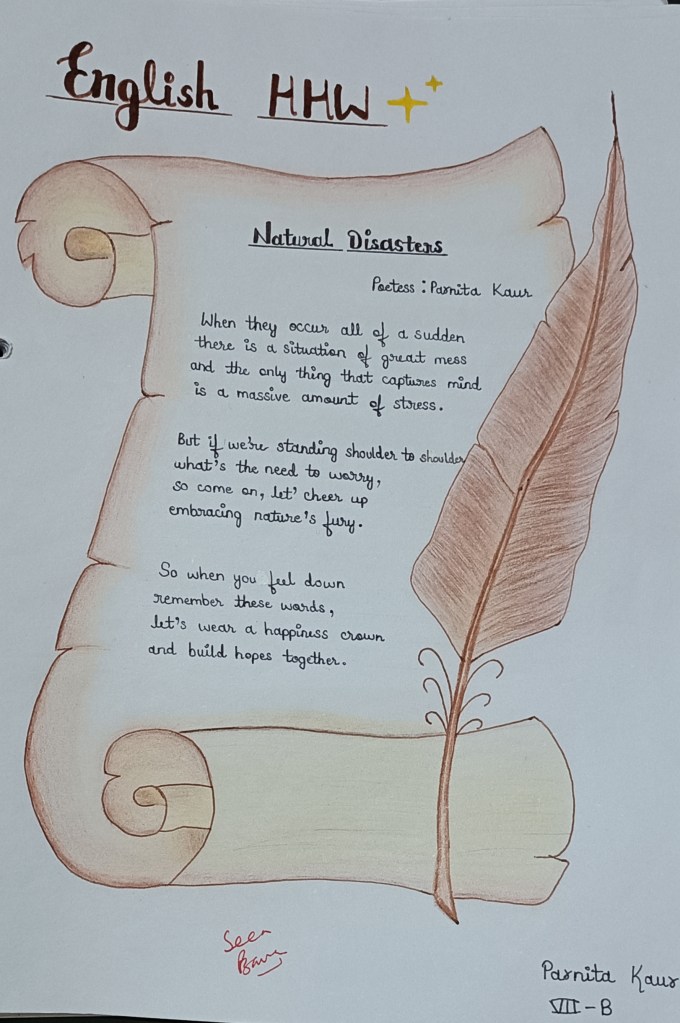 English HHW
Natural Disasters
Poetess : Parnita Kaur
When they occur all of a sudden
there is a situation of great mess
and the only thing that captures mind
is a massive amount of stress.
But if we're standing shoulder to shoulder
what's the need to worry,
so come on, let' cheer up
embracing nature's fury.
So when you feel down
remember these words,
let's wear a happiness crown
and build hopes together.
Seen
Parnita Kaur
VII - B